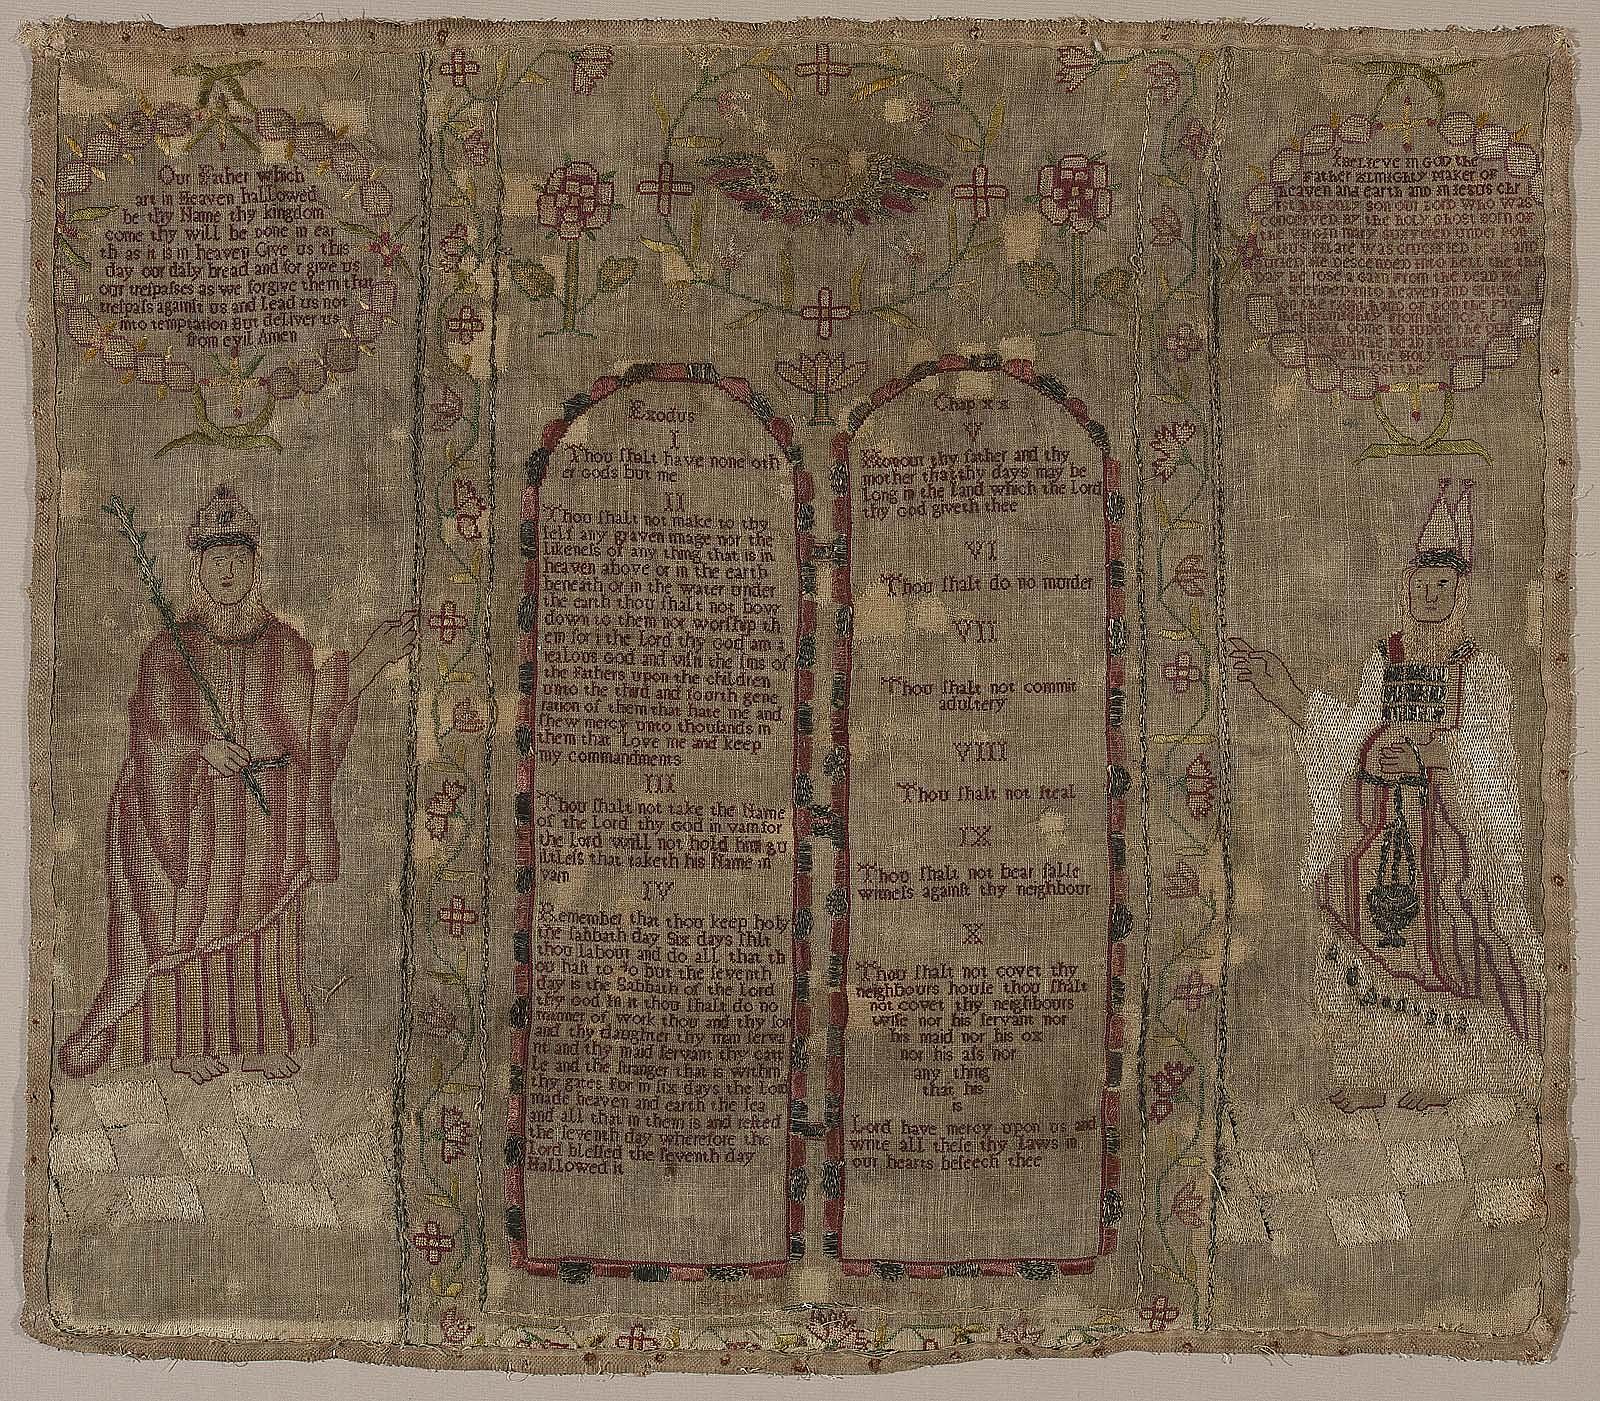 Our Father which
art in Heaven hallowed
be thy Name thy kingdom
come thy will be done in ear
th as it is in heaven Give us this
day our daly bread and for give us
our treſpaſſes as we forgive them that
treſpaſs againſt us and Lead us not
into temptation But deliver us
from evil Amen
Exodus
I
Thou ſhalt have none oth
er Gods but me
II
Thou ſhalt not make to thy
ſelf any graven image nor the
likeneſs of any thing that is in
heaven above or in the earth
beneath or in the water under
the earth thou ſhalt not bow
down to them nor worſhip th
em for i the Lord thy God am a
jealous God and viſit the ſins of
the Fathers upon the children
unto the third and fourth gene
ration of them that hate me and
ſhew mercy unto thouſands in
them that Love me and keep
my commandments
III
Thou ſhalt not take the Name
of the Lord thy God in vain for
the Lord will not hold him gu
iltleſs that taketh his Name in
vain
IV
Remember that thou keep holy
the ſabbath day Six days ſhlt
thou labour and do all that th
ou haſt to do but the ſeventh
day is the Sabbath of the Lord
thy God in it thou ſhalt do no
manner of work thou and thy ſon
and thy daughter thy man ſerva
nt and thy maid ſervant thy catt
le and the ſtranger that is within
thy gates For in ſix days the Lord
made heaven and earth the ſea
and all that in them is and reſted
the ſeventh day wherefore the
Lord bleſſed the ſeventh day
Hallowed it
Chap x x
V
Honour thy father and thy
mother that thy days may be
Long in the Land which the Lord
thy God giveth thee
VI
Thou ſhalt do no murder
VII
Thou ſhalt not commit
adultery
VIII
Thou ſhalt not ſteal
IX
Thou ſhalt not bear falſe
witneſs againſt thy neighbour
X
Thou ſhalt not covet thy
neighbours houſe thou ſhalt
not covet thy neighbours
wife nor his ſervant nor
his maid nor his ox
nor his aſs nor
any thing
that his
is
Lord have mercy upon us and
write all theſe thy Laws in
our hearts beſeech thee
I BELIEVE IN GOD the
FATHER ALMIGHLY MAKER OF
heaven and earth and in Jesus CHR
IST his only son our Lord who was
conceived by the holy Ghost born of
the virgin mary suffered under pon
tius Pilate was crucified dead and
buried he descended into hell the
day he rose again from the dead he
ascended into heaven and sitteth
on the right hand of God the Fat
her Almighty from whence he
shall come to judge the
and the dead
in the Holy Gh
ost the